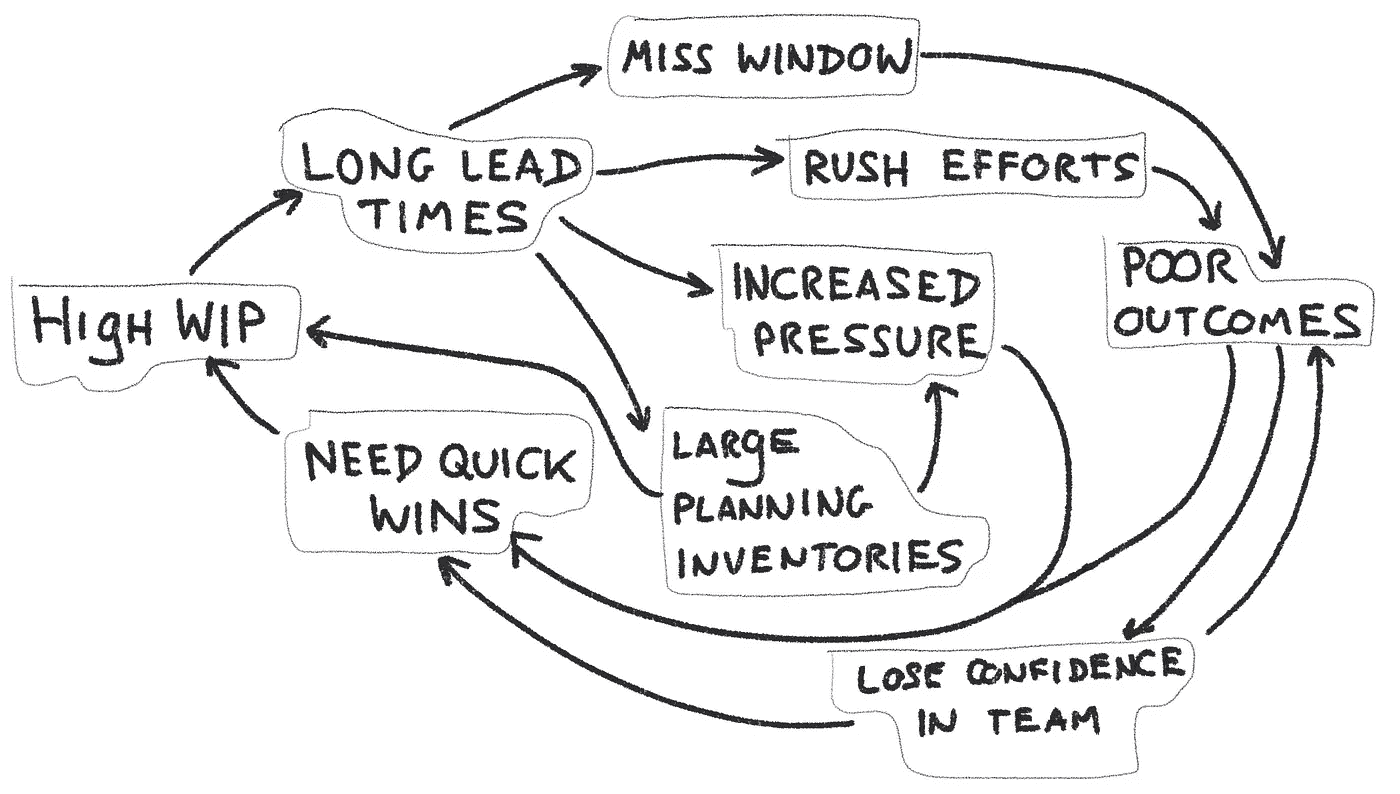 MISS WINDOW
LONG LEAD
TIMES
RUSH EFFORTS
HIgH WIP
INCREASED
PRESSURE
POOR
OUTCOMES
NEED QUICK
WINS
LARgE
PLANNING
INVENTORIES
LOSE CONFIDENCE
IN TEAM